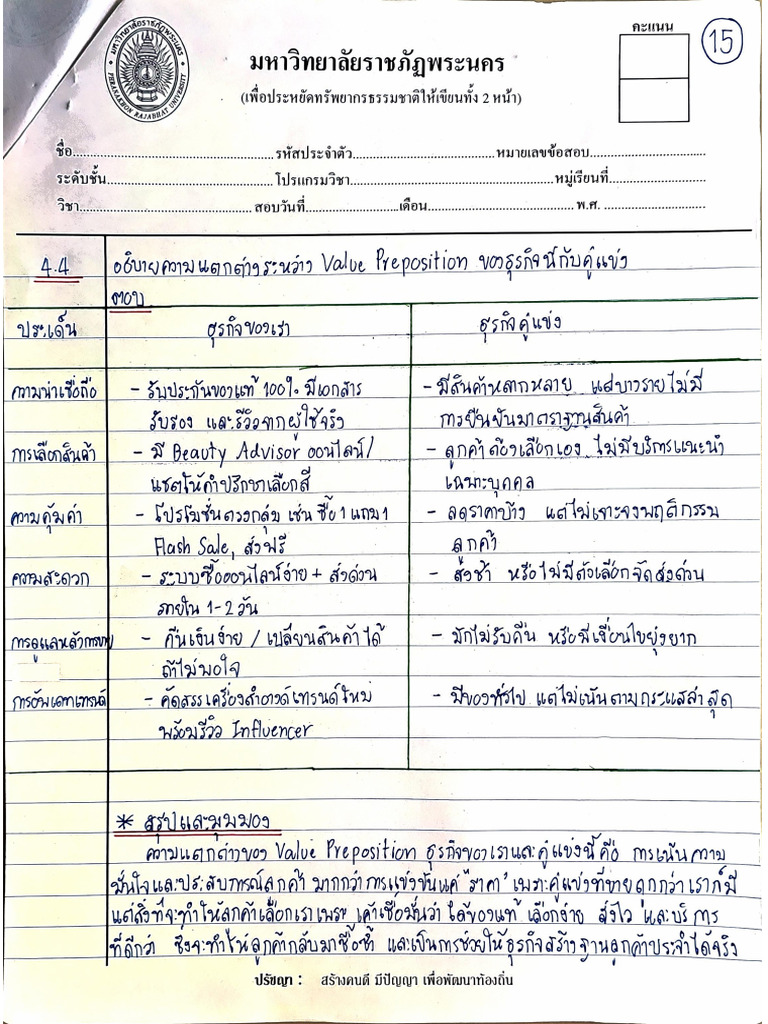 มหาวิทยาลัยราชภัฏพระนคร
PHRANAKHON RAJABHAT UNIVERSITY
คะแนน
15
มหาวิทยาลัยราชภัฏพระนคร
(เพื่อประหยัดทรัพยากรธรรมชาติให้เขียนทั้ง 2 หน้า)
ชื่อ รหัสประจำตัว หมายเลขข้อสอบ
ระดับชั้น โปรแกรมวิชา หมู่เรียนที่
วิชา สอบวันที่ เดือน พ.ศ.
4.4 อธิบายความแตกต่างระหว่าง Value Preposition ของธุรกิจนี้กับคู่แข่ง
ตอบ
ประเด็น ธุรกิจของเรา ธุรกิจคู่แข่ง
ความน่าเชื่อถือ - รับประกันของแท้ 100% มีเอกสาร - มีสินค้าหลากหลาย แต่บางรายไม่มี
รับรอง และรีวิวจากผู้ใช้จริง การยืนยันมาตราฐานสินค้า
การเลือกสินค้า - มี Beauty Advisor ออนไลน์/ - ลูกค้าต้องเลือกเอง ไม่มีบริการแนะนำ
แชตให้คำปรึกษาเลือกสี เฉพาะบุคคล
ความคุ้มค่า - โปรโมชั่นตรงกลุ่ม เช่น ซื้อ 1 แถม 1 - ลดราคาบ้าง แต่ไม่เจาะจงพฤติกรรม
Flash Sale, ส่งฟรี ลูกค้า
ความสะดวก - ระบบซื้อออนไลน์ง่าย + ส่งด่วน - ส่งช้า หรือไม่มีตัวเลือกจัดส่งด่วน
ภายใน 1-2 วัน
การดูแลหลังการขาย - คืนเงินง่าย / เปลี่ยนสินค้าได้ - มักไม่รับคืน หรือมีเงื่อนไขยุ่งยาก
ถ้าไม่พอใจ
การอัพเดทเทรนด์ - คัดสรรเครื่องสำอางค์เทรนด์ใหม่ - มีของทั่วไป แต่ไม่เน้นตามกระแสล่าสุด
พร้อมรีวิว Influencer
* สรุปและมุมมอง
ความแตกต่างของ Value Preposition ธุรกิจของเราและคู่แข่งนี้คือ การเน้นความ
มั่นใจและประสบการณ์ลูกค้า มากกว่าการแข่งขันแค่ "ราคา" เพราะคู่แข่งที่ขายถูกกว่าเราก็มี
แต่สิ่งที่จะทำให้ลูกค้าเลือกเราเพราะ เค้าเชื่อมั่นว่า ได้ของแท้ เลือกง่าย ส่งไว และบริการ
ที่ดีกว่า ซึ่งจะทำให้ลูกค้ากลับมาซื้อซ้ำ และเป็นการช่วยให้ธุรกิจสร้างฐานลูกค้าประจำได้จริง
ปรัชญา : สร้างคนดี มีปัญญา เพื่อพัฒนาท้องถิ่น